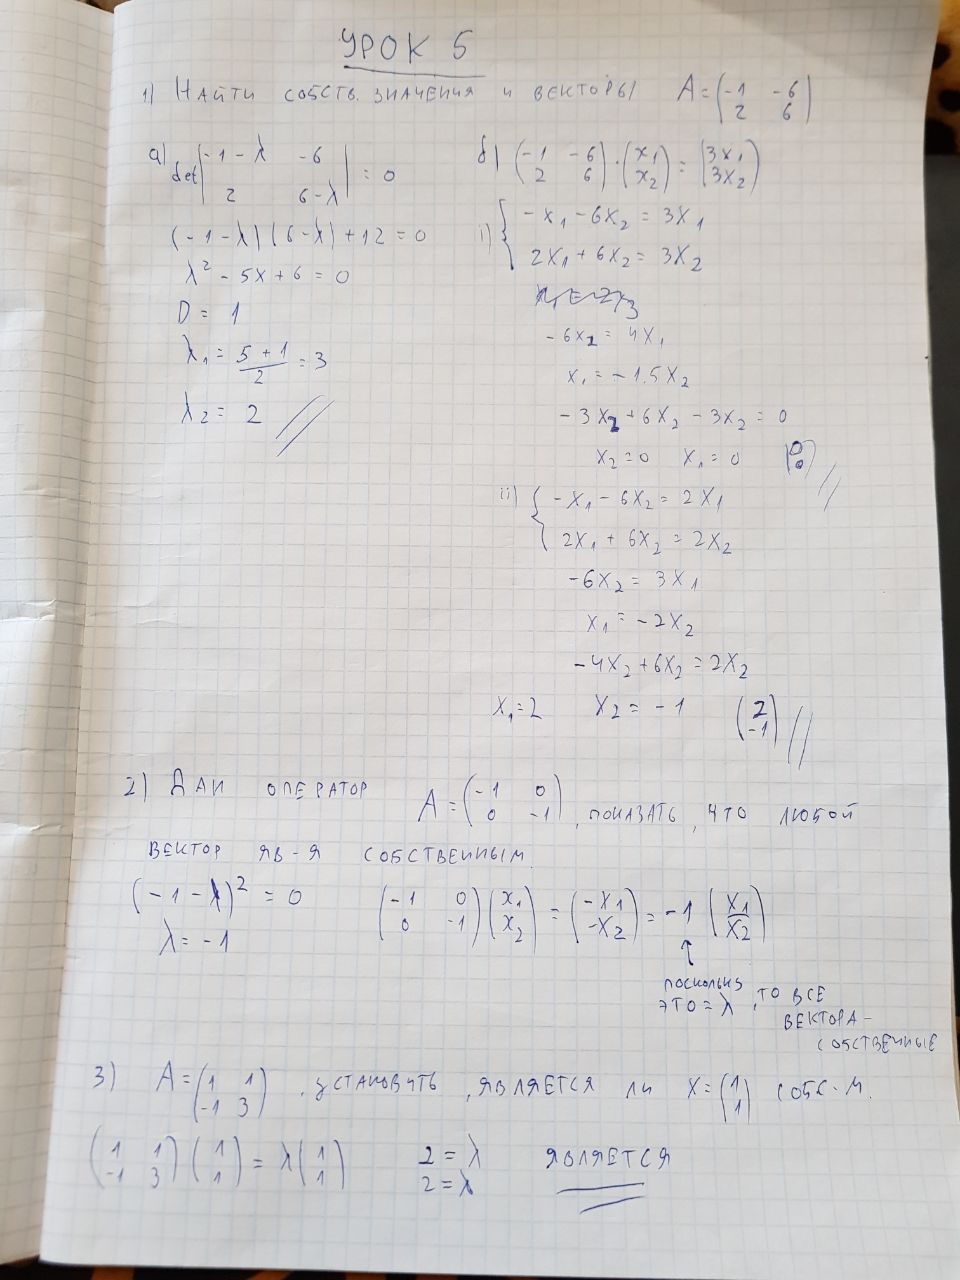 УРОК 5
1) НАЙТИ СОБСТВ. ЗНАЧЕНИЯ И ВЕКТОРЫ A = (-1 -6
2 6)
а) det |-1-λ -6
2 6-λ| = 0
(-1-λ)(6-λ)+12 = 0
λ² - 5x + 6 = 0
D = 1
λ₁ = (5+1)/2 = 3
λ₂ = 2
б) (-1 -6
2 6) · (x₁
x₂) = (3x₁
3x₂)
i) { -x₁ - 6x₂ = 3x₁
2x₁ + 6x₂ = 3x₂
-6x₂ = 4x₁
x₁ = -1.5x₂
-3x₂ + 6x₂ - 3x₂ = 0
x₂ = 0 x₁ = 0 (0
0)
ii) { -x₁ - 6x₂ = 2x₁
2x₁ + 6x₂ = 2x₂
-6x₂ = 3x₁
x₁ = -2x₂
-4x₂ + 6x₂ = 2x₂
x₁ = 2 x₂ = -1 (2
-1)
2) ДАН ОПЕРАТОР A = (-1 0
0 -1), ПОКАЗАТЬ, ЧТО ЛЮБОЙ
ВЕКТОР ЯВ-Я СОБСТВЕННЫМ.
(-1-λ)² = 0
λ = -1
(-1 0
0 -1) (x₁
x₂) = (-x₁
-x₂) = -1 (x₁
x₂)
↑
ПОСКОЛЬКУ
ЭТО = λ, ТО ВСЕ
ВЕКТОРА -
СОБСТВЕННЫЕ
3) A = (1 1
-1 3), УСТАНОВИТЬ, ЯВЛЯЕТСЯ ЛИ X = (1
1) СОБС-М.
(1 1
-1 3) (1
1) = λ (1
1)
2 = λ
2 = λ
ЯВЛЯЕТСЯ